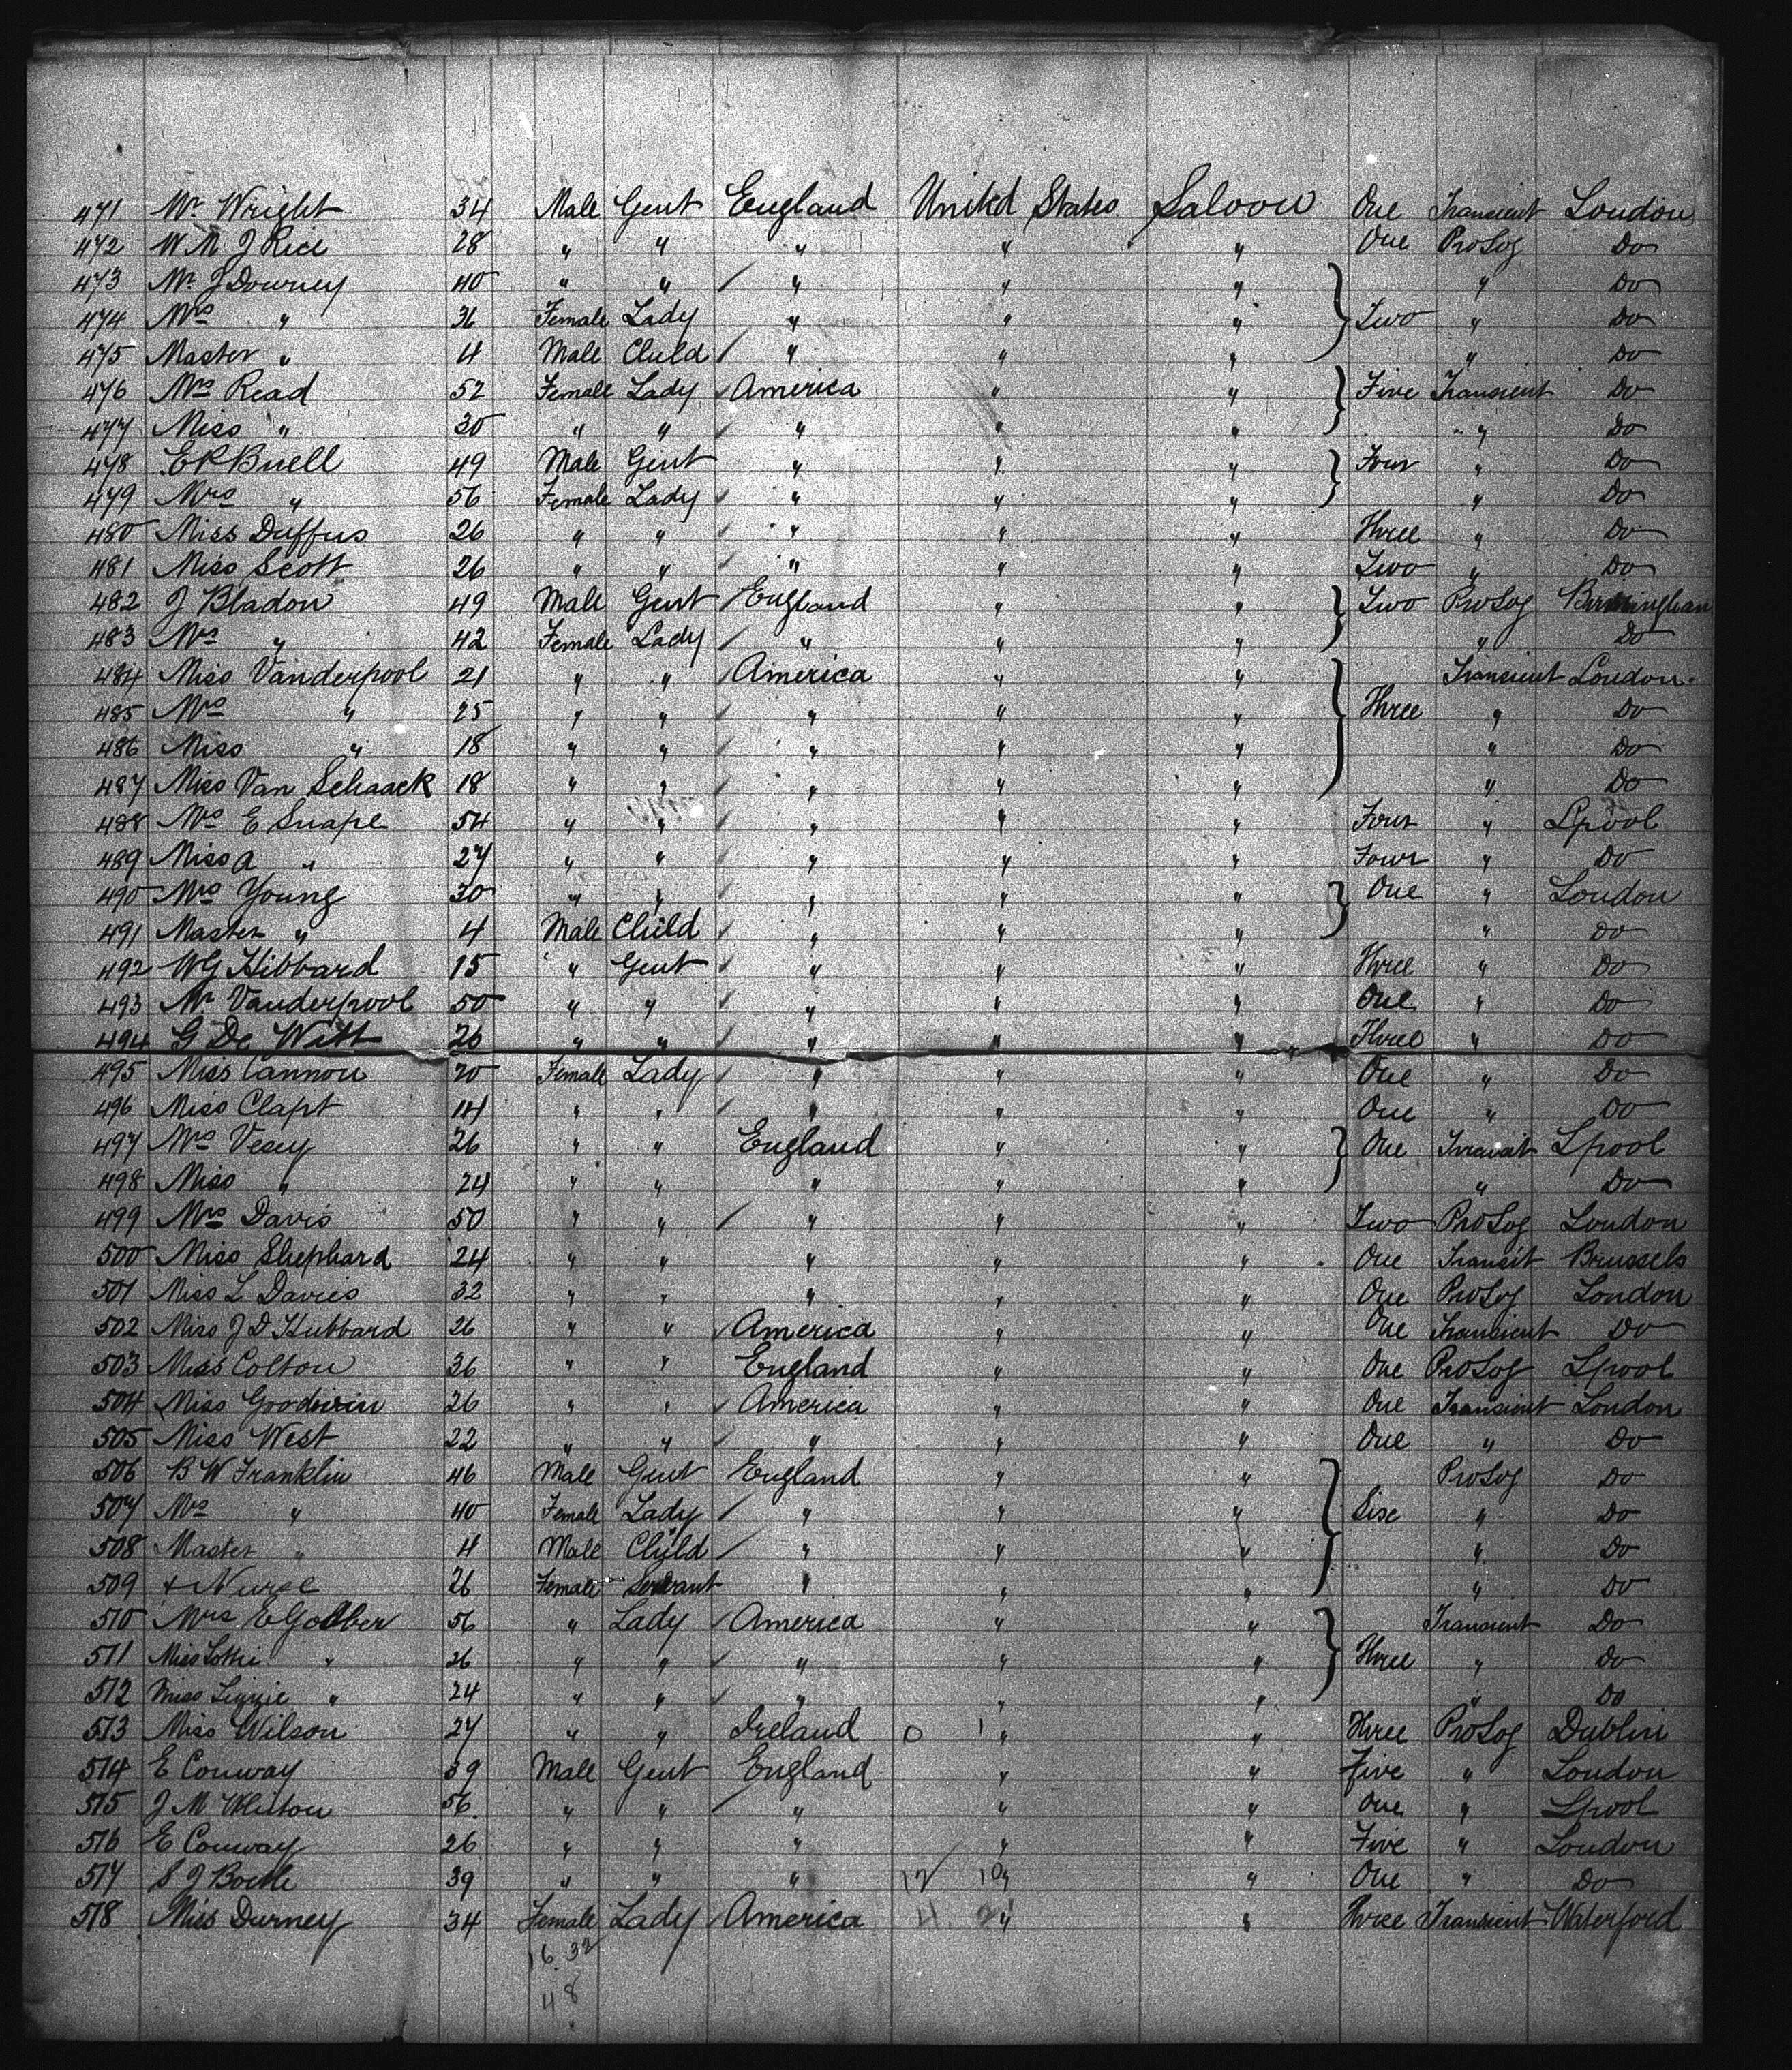 471 Mr Wright 34 Male Gent England United States Saloon One Transient London
472 W M J Rice 28 " " " " " One ProLog Do
473 Mr J Downey 40 " " " " " " Do
474 Mrs " 36 Female Lady " " " Two " Do
475 Master " 4 Male Child " " " " Do
476 Mrs Read 52 Female Lady America " " Five Transient Do
477 Miss " 30 " " " " " " Do
478 E P Buell 49 Male Gent " " " Four " Do
479 Mrs " 56 Female Lady " " " " Do
480 Miss Duffus 26 " " " " " Three " Do
481 Miss Scott 26 " " " " " Two " Do
482 J Bladon 49 Male Gent England " " Two ProLog Birmingham
483 Mrs " 42 Female Lady " " " " Do
484 Miss Vanderpool 21 " " America " " Transient London
485 Mrs " 25 " " " " " Three " Do
486 Miss " 18 " " " " " " Do
487 Miss Van Schaack 18 " " " " " " Do
488 Mrs E Snape 54 " " " " " Four " Lpool
489 Miss A " 27 " " " " " Four " Do
490 Mrs Young 30 " " " " " One " London
491 Master " 4 Male Child " " " " Do
492 W G Hibbard 15 " Gent " " " Three " Do
493 Mr Vanderpool 50 " " " " " One " Do
494 G De Witt 26 " " " " " Three " Do
495 Miss Cannon 20 Female Lady " " " One " Do
496 Miss Clapt 14 " " " " " One " Do
497 Mrs Vesey 26 " " England " " One Transit Lpool
498 Miss " 24 " " " " " " Do
499 Mrs Davis 50 " " " " " Two ProLog London
500 Miss Shephard 24 " " " " " One Transit Brussels
501 Miss L Davies 32 " " " " " One ProLog London
502 Miss J D Hubbard 26 " " America " " One Transient Do
503 Miss Colton 36 " " England " " One ProLog Lpool
504 Miss Goodwin 26 " " America " " One Transient London
505 Miss West 22 " " " " " One " Do
506 B W Franklin 46 Male Gent England " " ProLog Do
507 Mrs " 40 Female Lady " " " Six " Do
508 Master " 4 Male Child " " " " Do
509 + Nurse 26 Female Servant " " " " Do
510 Mrs E 56 " Lady America " " Transient Do
511 Miss Lottie " 26 " " " " " Three " Do
512 Miss Lizzie " 24 " " " " " " Do
513 Miss Wilson 27 " " Ireland 0 1 " " Three ProLog Dublin
514 E Conway 39 Male Gent England " " Five " London
515 J M Whitton 56 " " " " " One " Lpool
516 E Conway 26 " " " " " Five " London
517 S J 39 " " " 12 10 " " One " Do
518 Miss Durney 34 Female Lady America 4 " " Three Transient Waterford
16 32
48